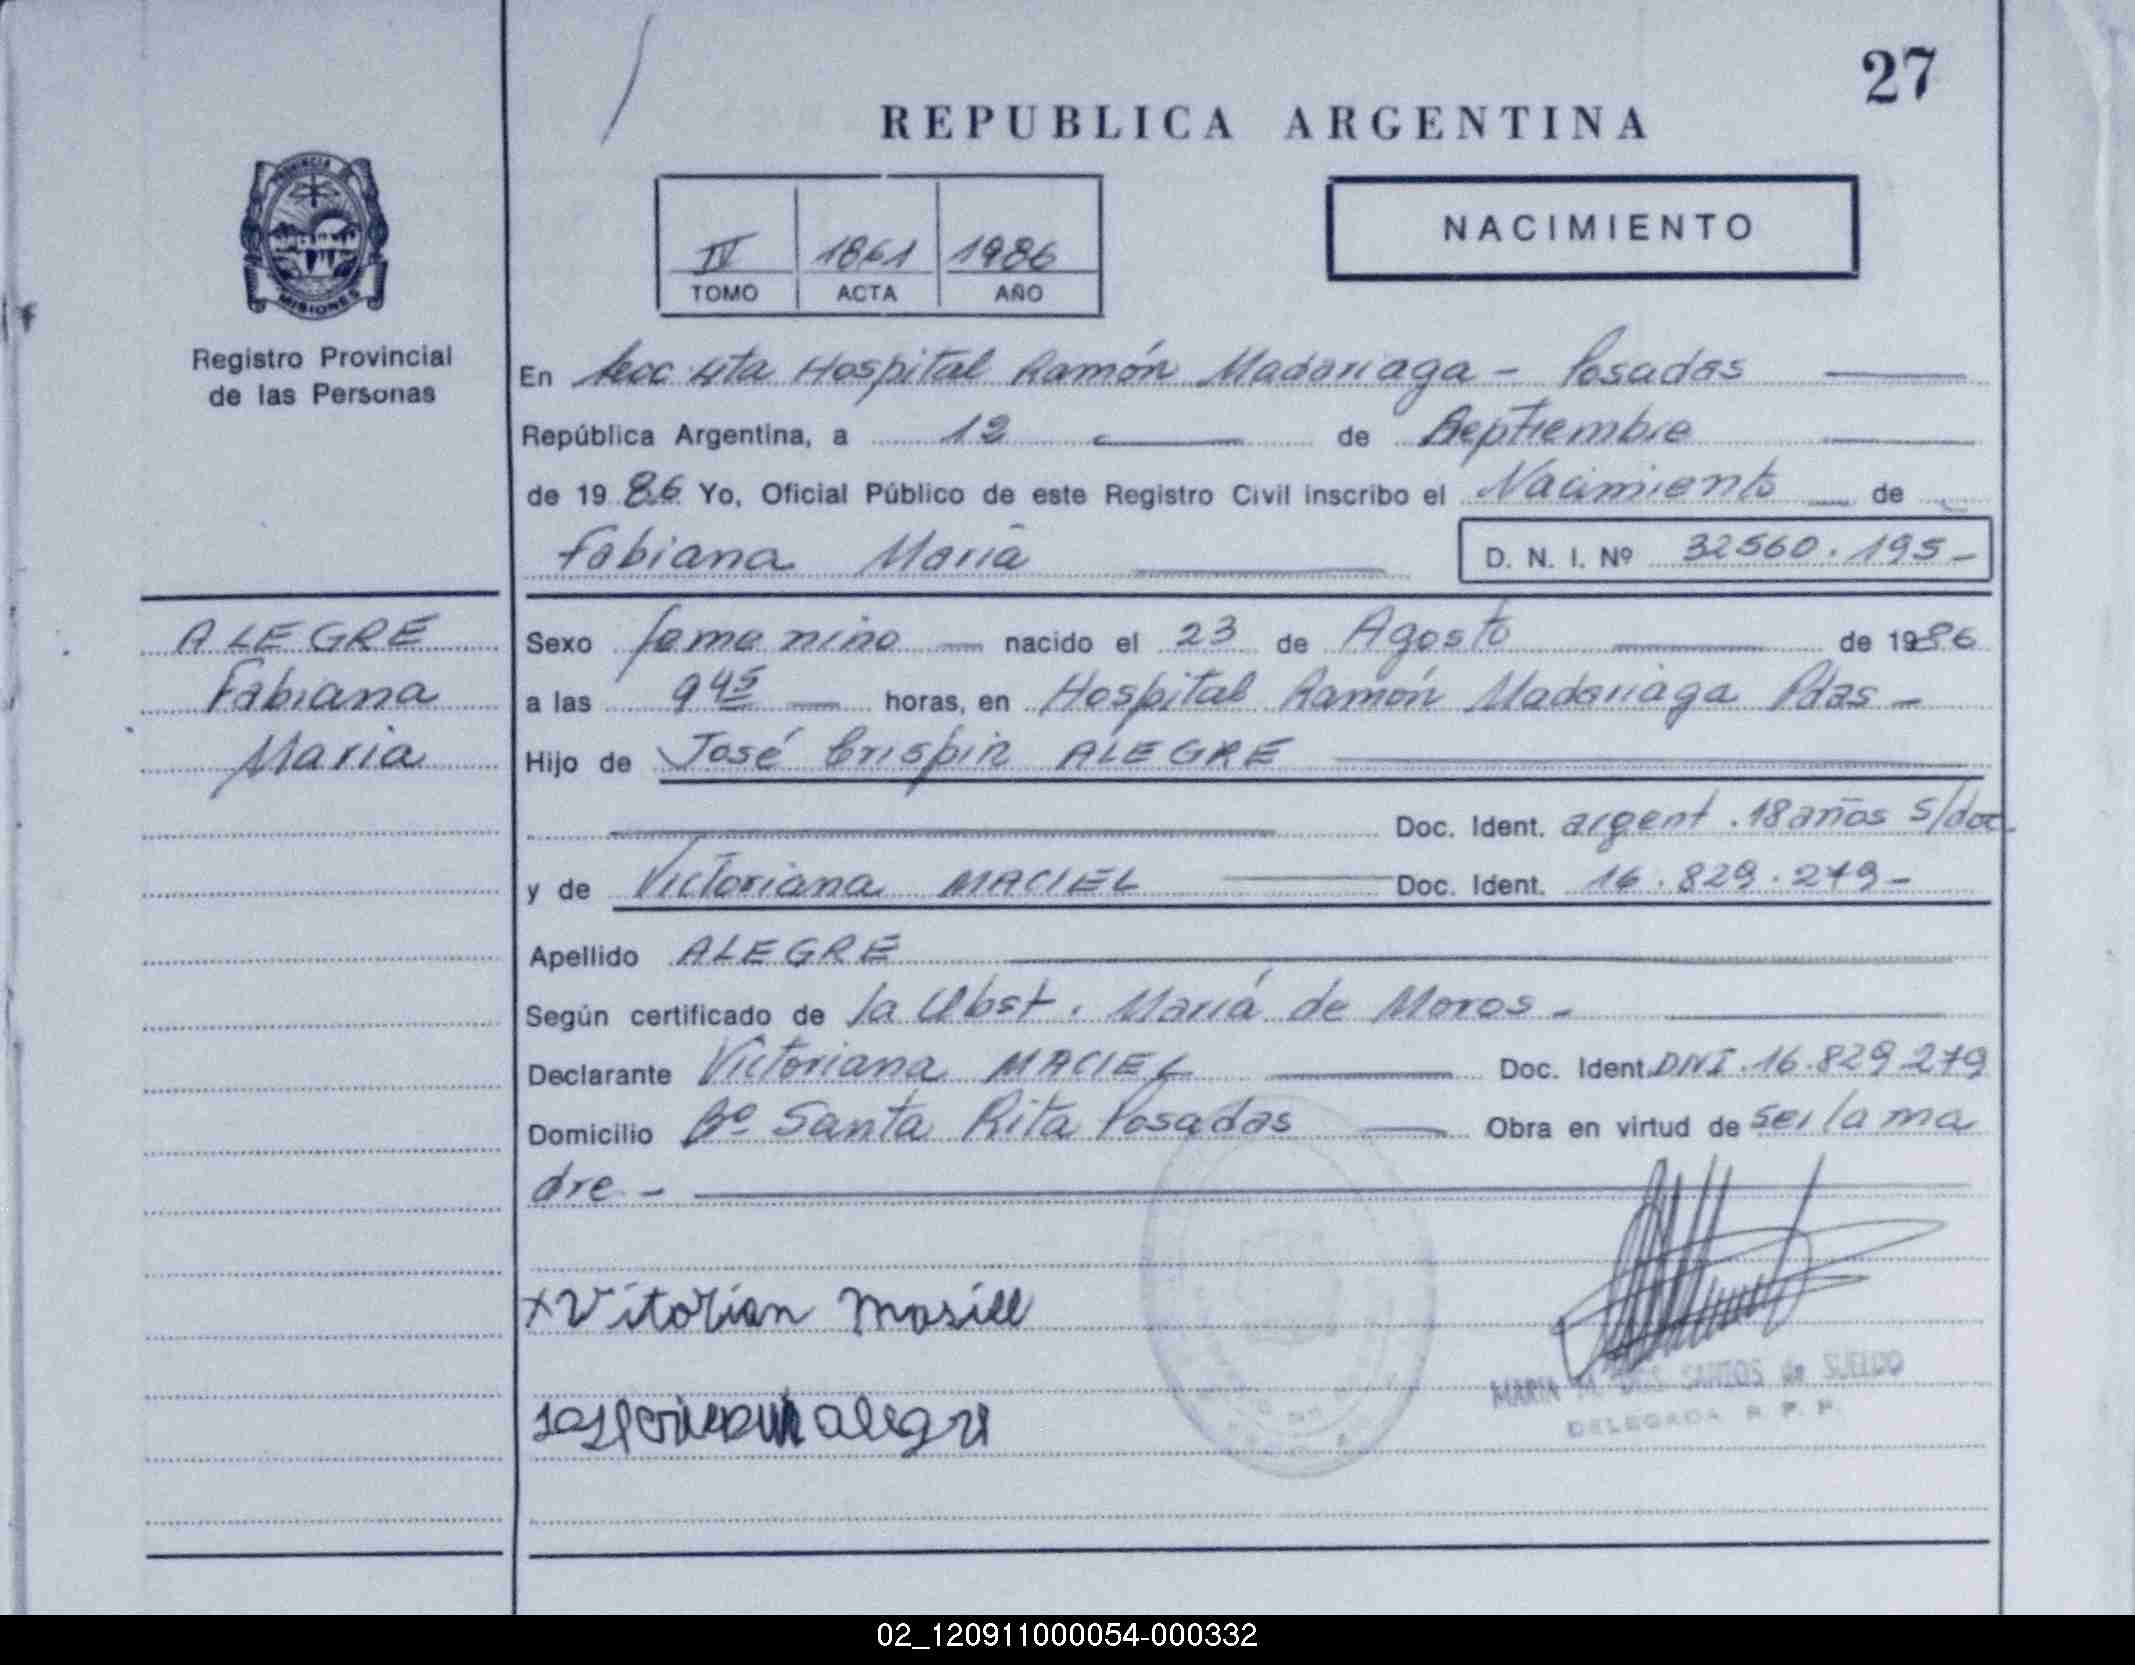 27
REPUBLICA ARGENTINA
PROVINCIA DE
MISIONES
Registro Provincial
de las Personas
IV 1861 1986
TOMO ACTA AÑO
NACIMIENTO
En Secc 4ta Hospital Ramón Madariaga - Posadas
República Argentina, a 12 de Septiembre
de 1986 Yo, Oficial Público de este Registro Civil inscribo el Nacimiento de
Fabiana María
D. N. I. Nº 32560.195-
ALEGRE
Fabiana
Maria
Sexo femenino nacido el 23 de Agosto de 1986
a las 9 45 horas, en Hospital Ramón Madariaga Pdas-
Hijo de José Crispin ALEGRE
Doc. Ident. argent. 18 años s/doc.
y de Victoriana MACIEL Doc. Ident. 16.829.279-
Apellido ALEGRE
Según certificado de la Obst. María de Moros-
Declarante Victoriana MACIEL Doc. Ident. DNI.16.829.279
Domicilio Bº Santa Rita Posadas Obra en virtud de ser la ma
dre-
x Vitorian Masiel
alegre
MARIA M. DOS SANTOS de SUELDO
DELEGADA R. P. P.
02_120911000054-000332